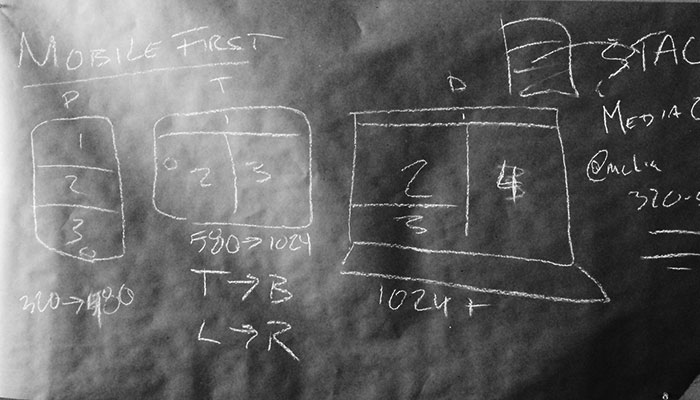 MOBILE FIRST
P
1
2
3
320→480
T
1
2 3
580→1024
T→B
L→R
D
1
2 4
3
1024+
STAC
MEDIA
@media
320-